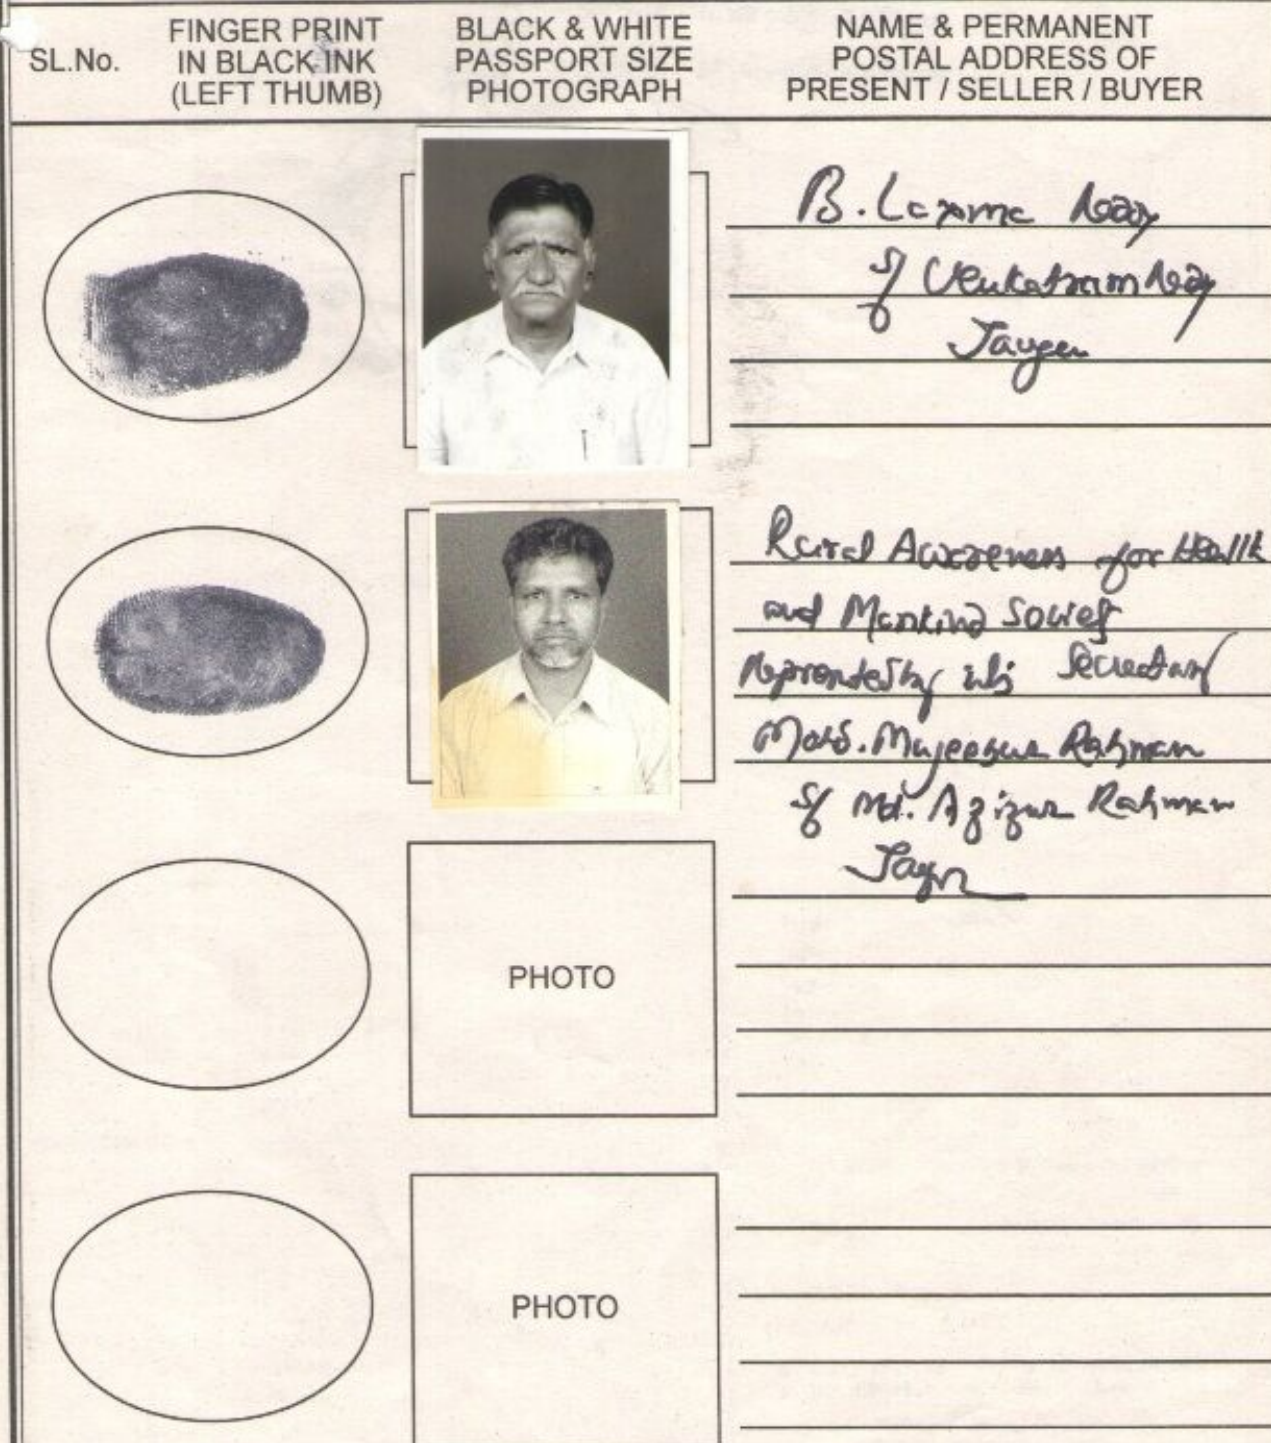 SL.No.
FINGER PRINT
IN BLACK INK
(LEFT THUMB)
BLACK & WHITE
PASSPORT SIZE
PHOTOGRAPH
NAME & PERMANENT
POSTAL ADDRESS OF
PRESENT / SELLER / BUYER
B. Laxma Reddy
S/o Venkatram Reddy
Rural Awareness for Health
and Mankind Society
Represented by its Secretary
Mohd. Mujeebur Rahman
S/o Md. Azizur Rahman
PHOTO
PHOTO